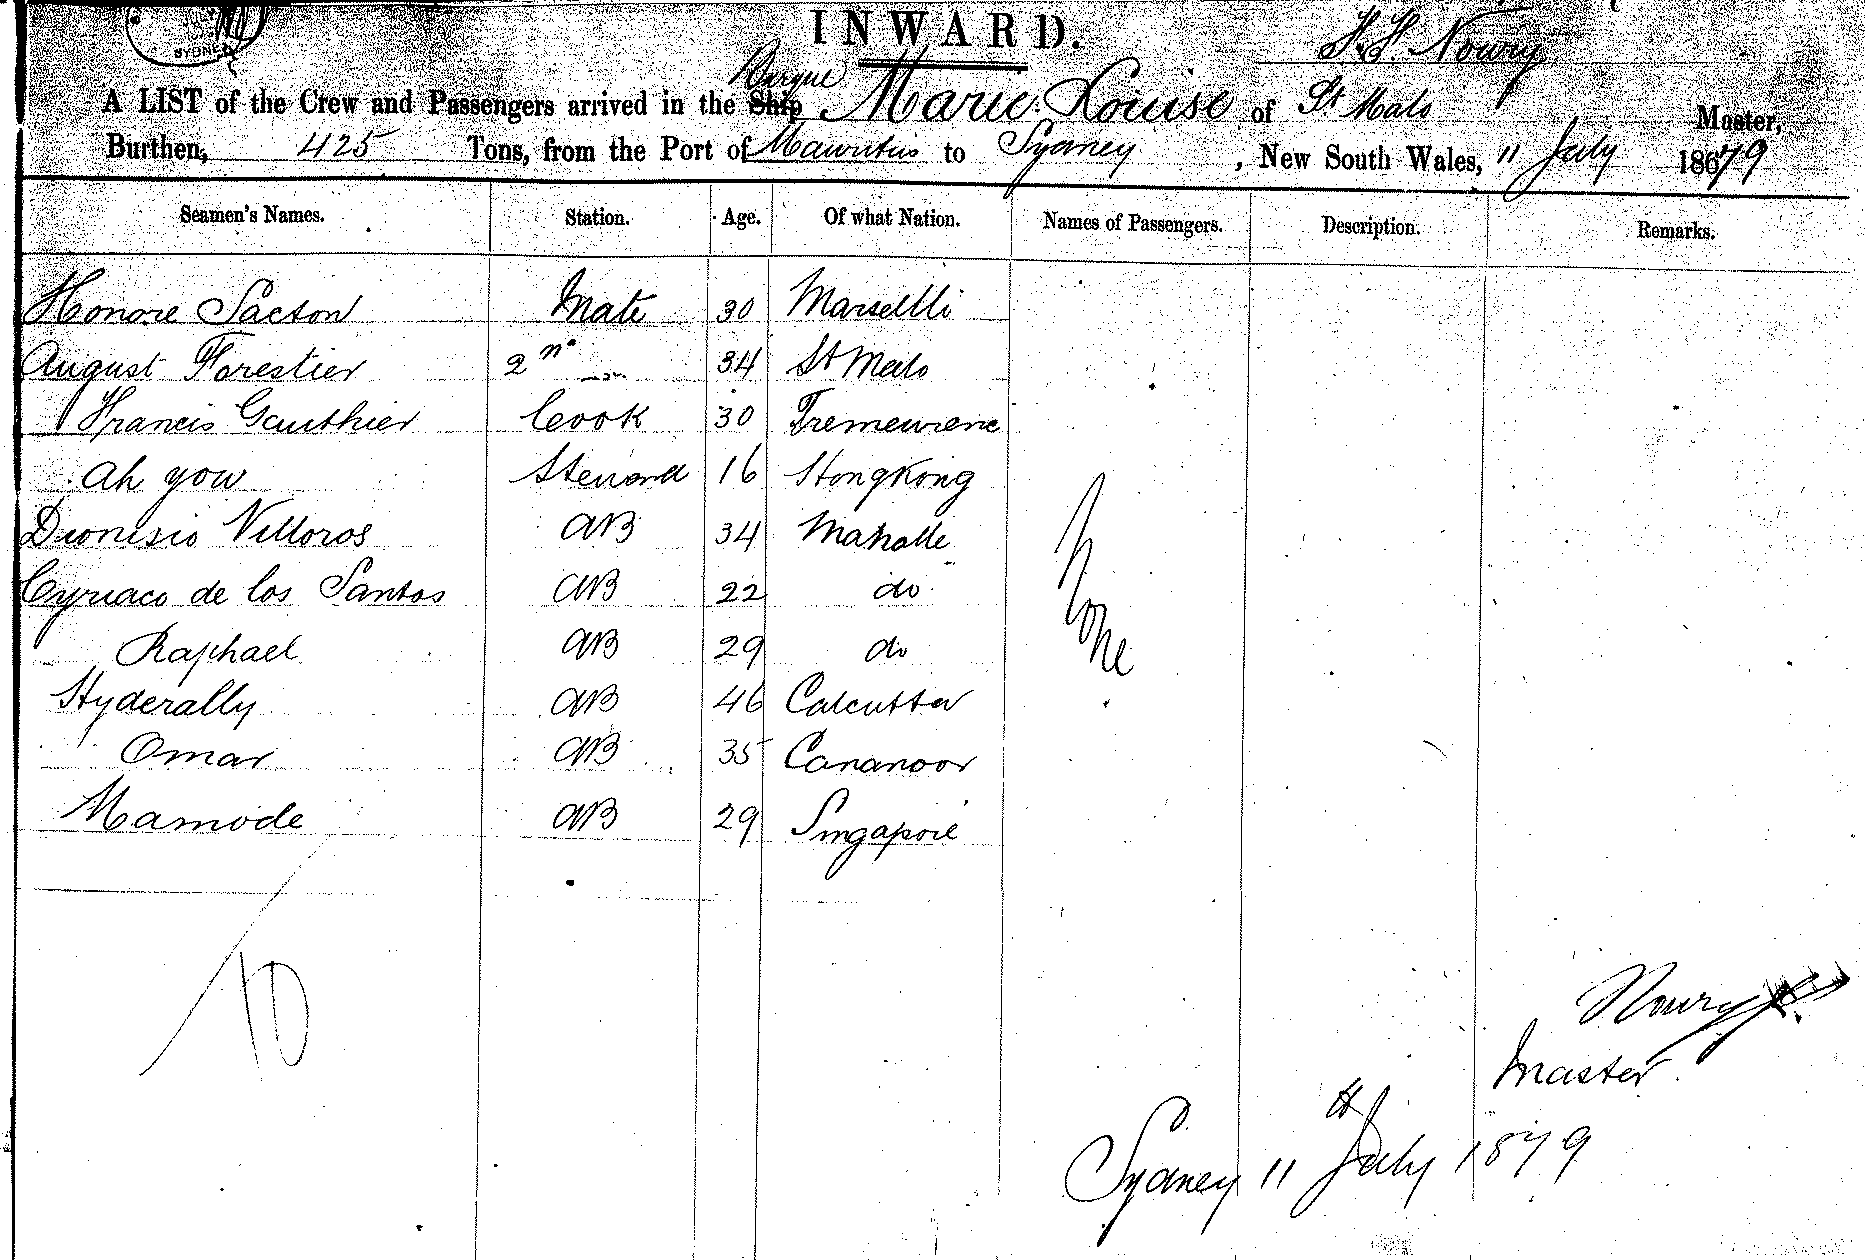 SYDNEY
INWARD.
F. F. Nowry
A LIST of the Crew and Passengers arrived in the Ship Barque Marie Louise of St Malo Master,
Burthen, 425 Tons, from the Port of Mauritius to Sydney, New South Wales, 11 July 18679
Seamen's Names. Station. Age. Of what Nation. Names of Passengers. Description. Remarks.
Honore Sacton Mate 30 Marsellli
August Forestier 2nd 34 St Malo
Francis Gauthier Cook 30 Tremeurene
Ah you Steward 16 HongKong
Dionisio Villoros AB 34 Mahalle
Cyriaco de los Santos AB 22 do
Raphael AB 29 do
None
Hyderally AB 46 Calcutta
Omar AB 35 Cananoor
Mamode AB 29 Singapore
10
Nowry
Master
Sydney 11th July 1879